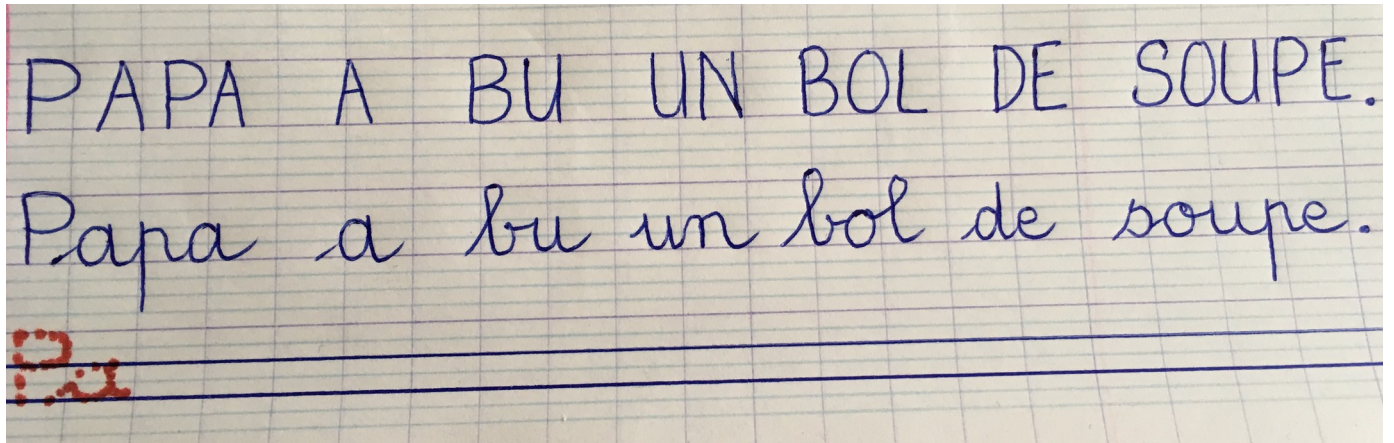 PAPA A BU UN BOL DE SOUPE.
Papa a bu un bol de soupe.
Pa